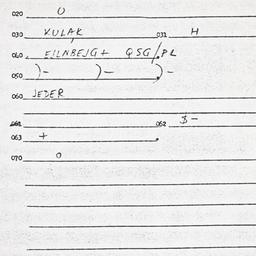 020 O
030 KULAK 031 H
040 EILNBEJG+ QSG/PL
050 )- )- )-
060 JEDER
061 062 $-
063 +
070 O